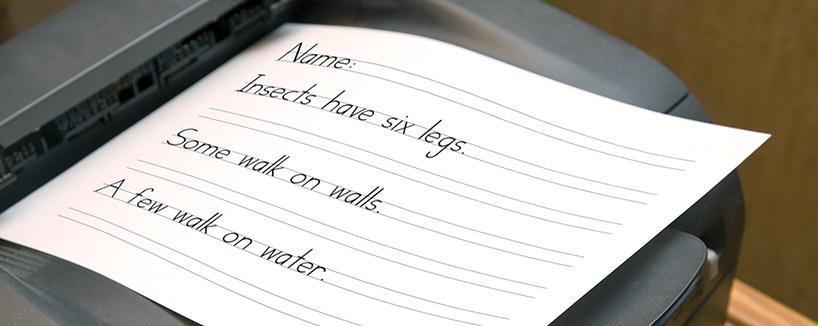 Name:
Insects have six legs.
Some walk on walls.
A few walk on water.